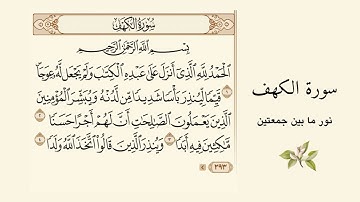 سورة الكهف
بِسْمِ اللَّهِ الرَّحْمَٰنِ الرَّحِيمِ
الْحَمْدُ لِلَّهِ الَّذِي أَنزَلَ عَلَىٰ عَبْدِهِ الْكِتَابَ وَلَمْ يَجْعَل لَّهُ عِوَجًا ۜ
١ قَيِّمًا لِّيُنذِرَ بَأْسًا شَدِيدًا مِّن لَّدُنْهُ وَيُبَشِّرَ الْمُؤْمِنِينَ
الَّذِينَ يَعْمَلُونَ الصَّالِحَاتِ أَنَّ لَهُمْ أَجْرًا حَسَنًا ٢
مَّاكِثِينَ فِيهِ أَبَدًا ٣ وَيُنذِرَ الَّذِينَ قَالُوا اتَّخَذَ اللَّهُ وَلَدًا ٤
٢٩٣
سورة الكهف
نور ما بين جمعتين